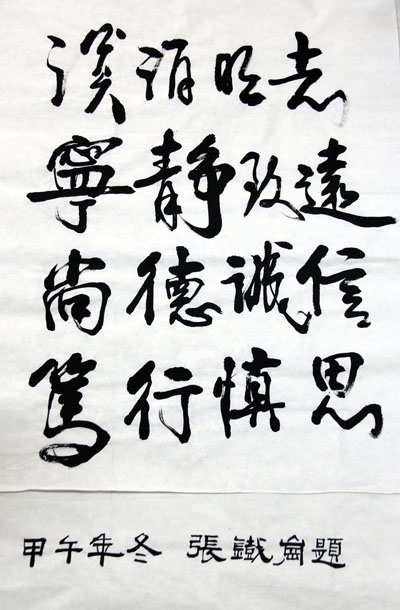 淡泊明志
寧静致遠
尚德誠信
篤行慎思
甲午年冬 張鐵崗題